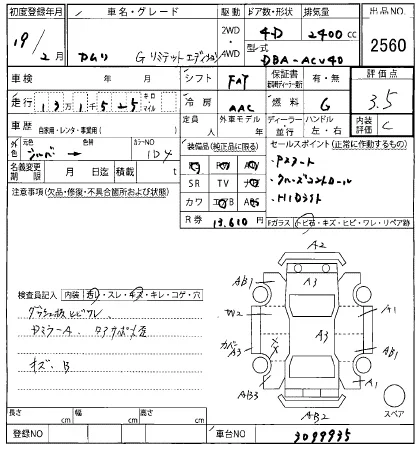 初度登録年月 車名・グレード 駆動 ドア数・形状 排気量 出品NO.
19/2月 カムリ Gリミテッドエディション 2WD・4WD 4D 2400cc 2560
型式 DBA-ACV40
車検 年 月 シフト FAT 保証書 有・無 評価点
走行 キロ マイル 冷房 AAC 燃料 G 3.5
車歴 自家用・レンタ・事業用( ) 定員 人 外車モデル 年 ディーラー 並行 ハンドル 左・右 内装評価 C
元色 シルバー → 色替 カラーNO 1D4 装備品(純正品に限る) セールスポイント(正常に作動するもの)
名義変更期限 月 日迄 積載 t SR TV ナビ Pスタート
注意事項(欠品・修復・不具合箇所および状態) カワ エアB クルーズコントロール
R券 13,610円 HIDライト
Fガラス トビ石・キズ・ヒビ・ワレ・リペア跡
検査員記入 内装 汚レ・スレ・キズ・キレ・コゲ・穴
キズ・B
A2
AB1 A3
W2 A1
カバー A3 A3 AB1
AB3 A1
AB2
スペア
長さ cm 幅 cm 高さ cm
登録NO 車台NO 3099935